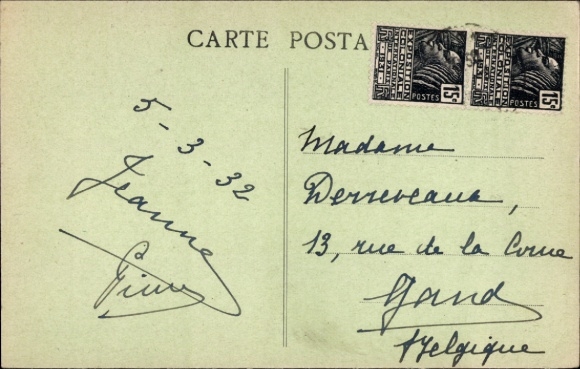 CARTE POSTA
EXPOSITION
COLONIALE
INTERNATIONALE
PARIS 1931
POSTES
15c
EXPOSITION
COLONIALE
INTERNATIONALE
PARIS 1931
POSTES
15c
5-3-32
Jeanne
Madame
13, rue de la Corne
Gand
Belgique